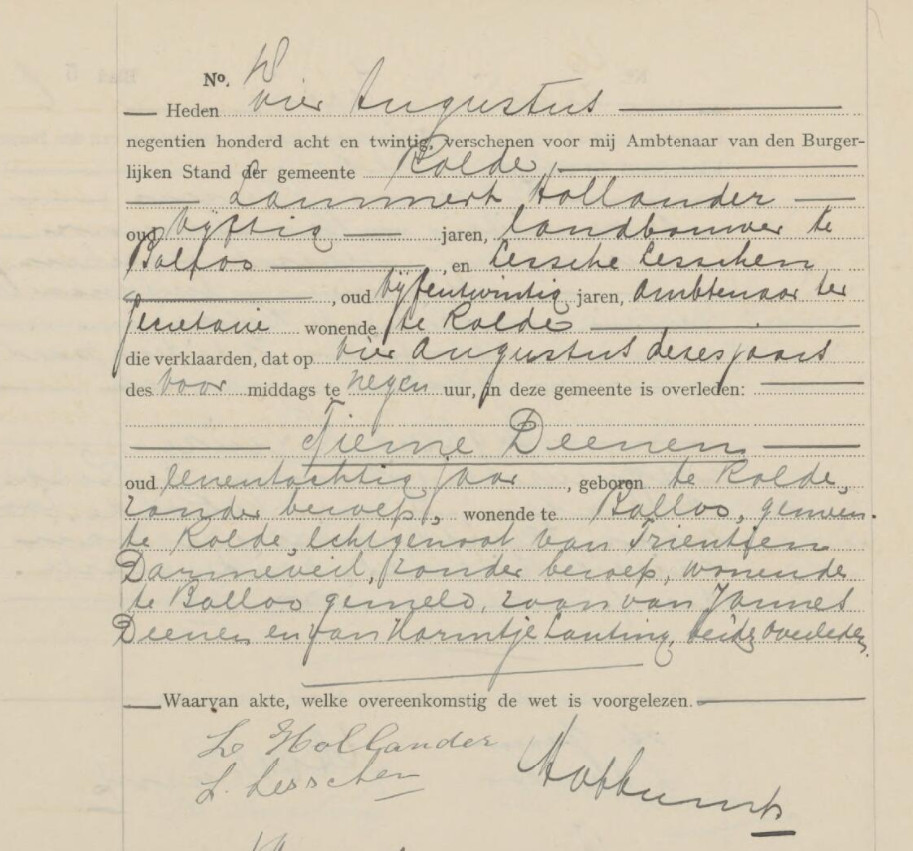 No.
Heden vier Augustus
negentien honderd acht en twintig, verschenen voor mij Ambtenaar van den Burger-
lijken Stand der gemeente Rolde
Lammert Hollander
oud vijftig jaren, landbouwer te
Balloo, en Lessche Lesschen
, oud vijfentwintig jaren, ambtenaar ter
secretarie wonende te Rolde
die verklaarden, dat op vier Augustus dezes jaars
des voor middags te negen uur, in deze gemeente is overleden:
Tieme Deenen
oud jaar, geboren te Rolde,
zonder beroep, wonende te Balloo, gemeen-
te Rolde, echtgenoot van Trientjen
zonder beroep, wonende
te Balloo gemeld, zoon van Jannes
Deenen en van Harmtje Lanting, beide overleden.
Waarvan akte, welke overeenkomstig de wet is voorgelezen.
L Hollander
L. Lesschen